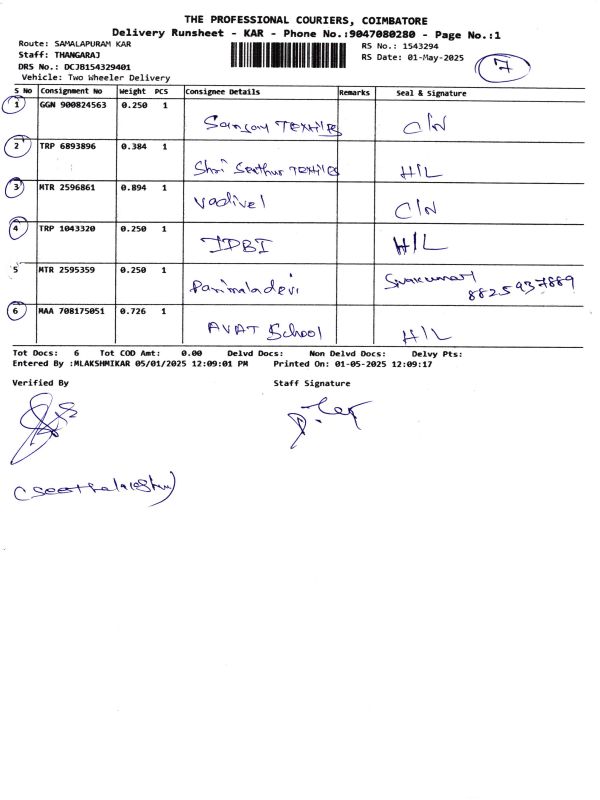 THE PROFESSIONAL COURIERS, COIMBATORE
Delivery Runsheet - KAR - Phone No.:9047080280 - Page No.:1
Route: SAMALAPURAM KAR
RS No.: 1543294
Staff: THANGARAJ
RS Date: 01-May-2025
7
DRS No.: DCJB154329401
Vehicle: Two Wheeler Delivery
S No Consignment No Weight PCS Consignee Details Remarks Seal & Signature
1 GGN 900824563 0.250 1
TEXTILES C/N
2 TRP 6893896 0.384 1
Shri Senthur TEXTILES H/L
3 MTR 2596861 0.894 1
Vadivel C/N
4 TRP 1043320 0.250 1
IDBI H/L
5 MTR 2595359 0.250 1
Parimaladevi Sivakumar
8825937889
6 MAA 708175051 0.726 1
AVAT School H/L
Tot Docs: 6 Tot COD Amt: 0.00 Delvd Docs: Non Delvd Docs: Delvy Pts:
Entered By :MLAKSHMIKAR 05/01/2025 12:09:01 PM Printed On: 01-05-2025 12:09:17
Verified By Staff Signature